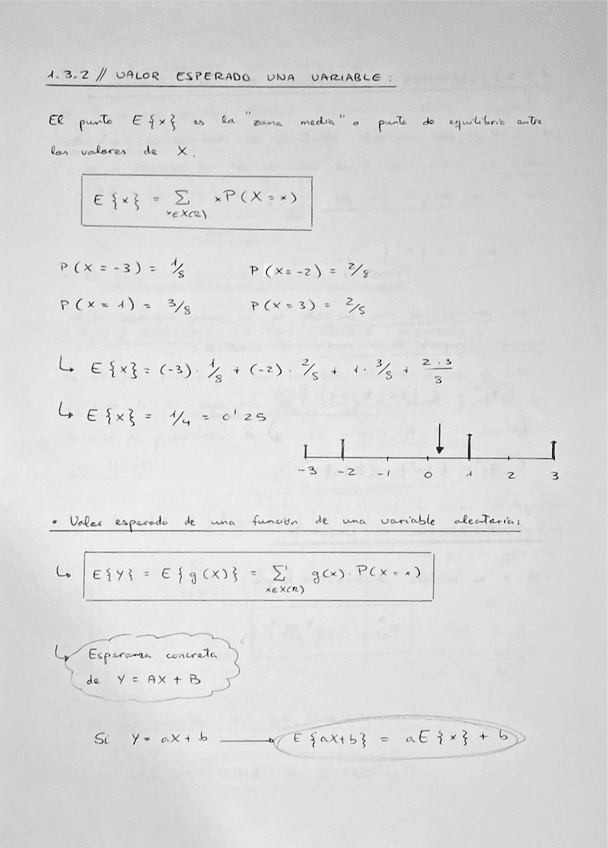 1.3.2 // VALOR ESPERADO UNA VARIABLE :
El punto E{x} es la "zona media" o punto de equilibrio entre
los valores de X.
E{x} = Σ x P(X = x)
x∈X(Ω)
P(X = -3) = 1/8 P(X = -2) = 2/8
P(X = 1) = 3/8 P(X = 3) = 2/8
↳ E{x} = (-3) · 1/8 + (-2) · 2/8 + 1 · 3/8 + 2·3/8
↳ E{x} = 1/4 = 0'25
-3 -2 -1 0 1 2 3
• Valor esperado de una función de una variable aleatoria:
↳ E{Y} = E{g(X)} = Σ g(x) · P(X = x)
x∈X(Ω)
↳ Esperanza concreta
de Y = AX + B
Si Y = aX + b → E{aX+b} = aE{x} + b